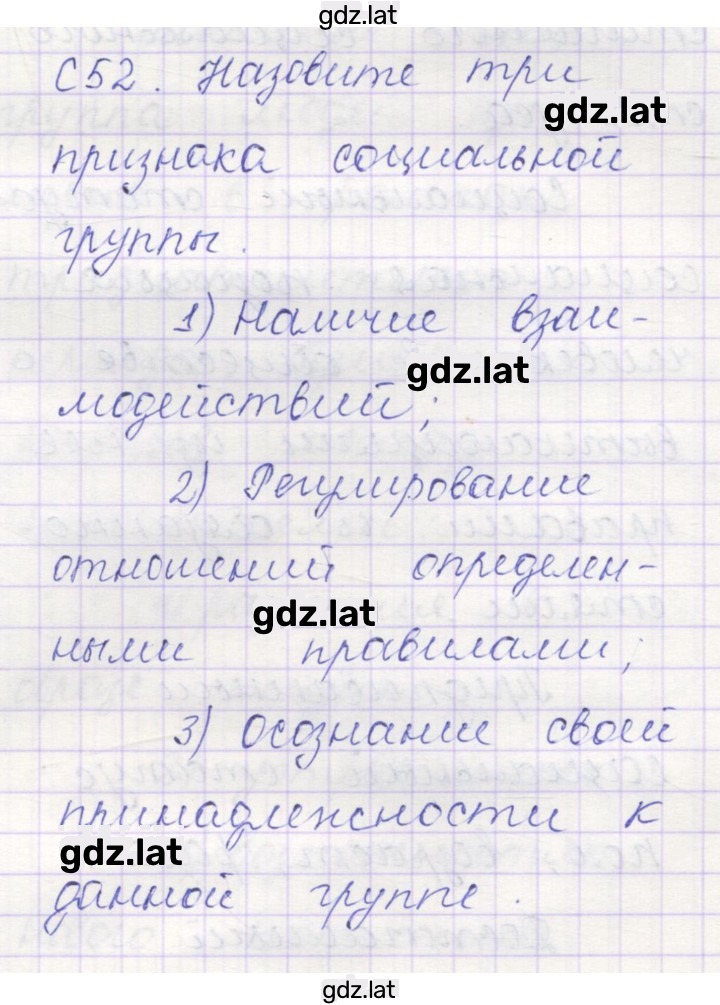 gdz.lat
С52. Назовите три
gdz.lat
признака социальной
группы.
1) Наличие взаи-
gdz.lat
модействий;
2) Регулирование
отношений определен-
gdz.lat
ными правилами;
3) Осознание своей
принадлежности к
gdz.lat
данной группе.
gdz.lat